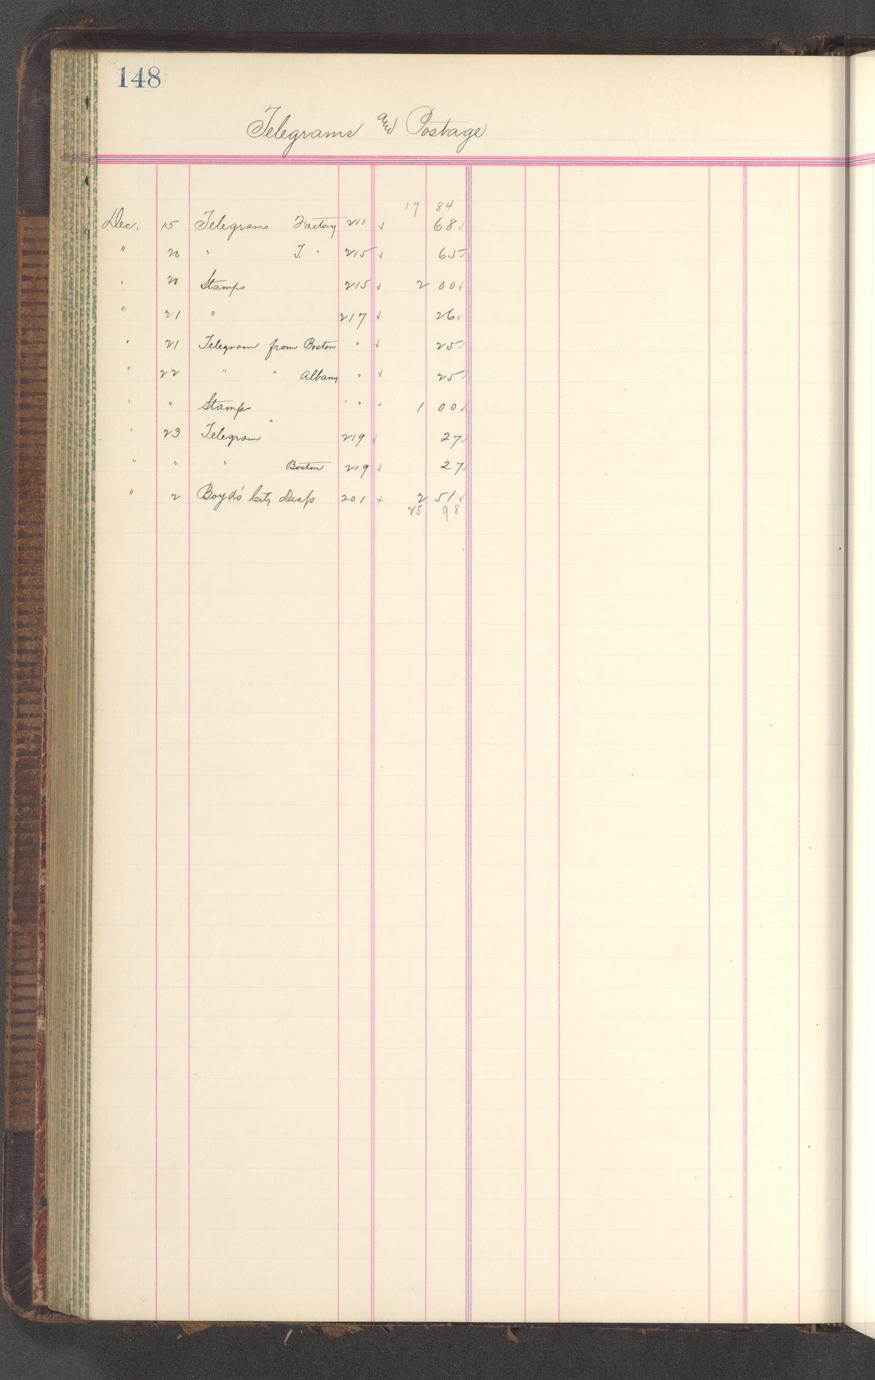 148
Telegrams and Postage
17 84
Dec. 15 Telegrams Factory 211 ✓ 68 ✓
" 20 " F. " 215 ✓ 65 ✓
" 20 Stamps 215 ✓ 2 00 ✓
" 21 " 217 ✓ 26 ✓
" 21 Telegram from Boston " ✓ 25 ✓
" 22 " " Albany " ✓ 25 ✓
" " Stamps " " " 1 00 ✓
" 23 Telegram " 219 ✓ 27 ✓
" " " Boston 219 ✓ 27 ✓
" 2 Boyd's City Desp 201 + 2 51 ✓
25 98